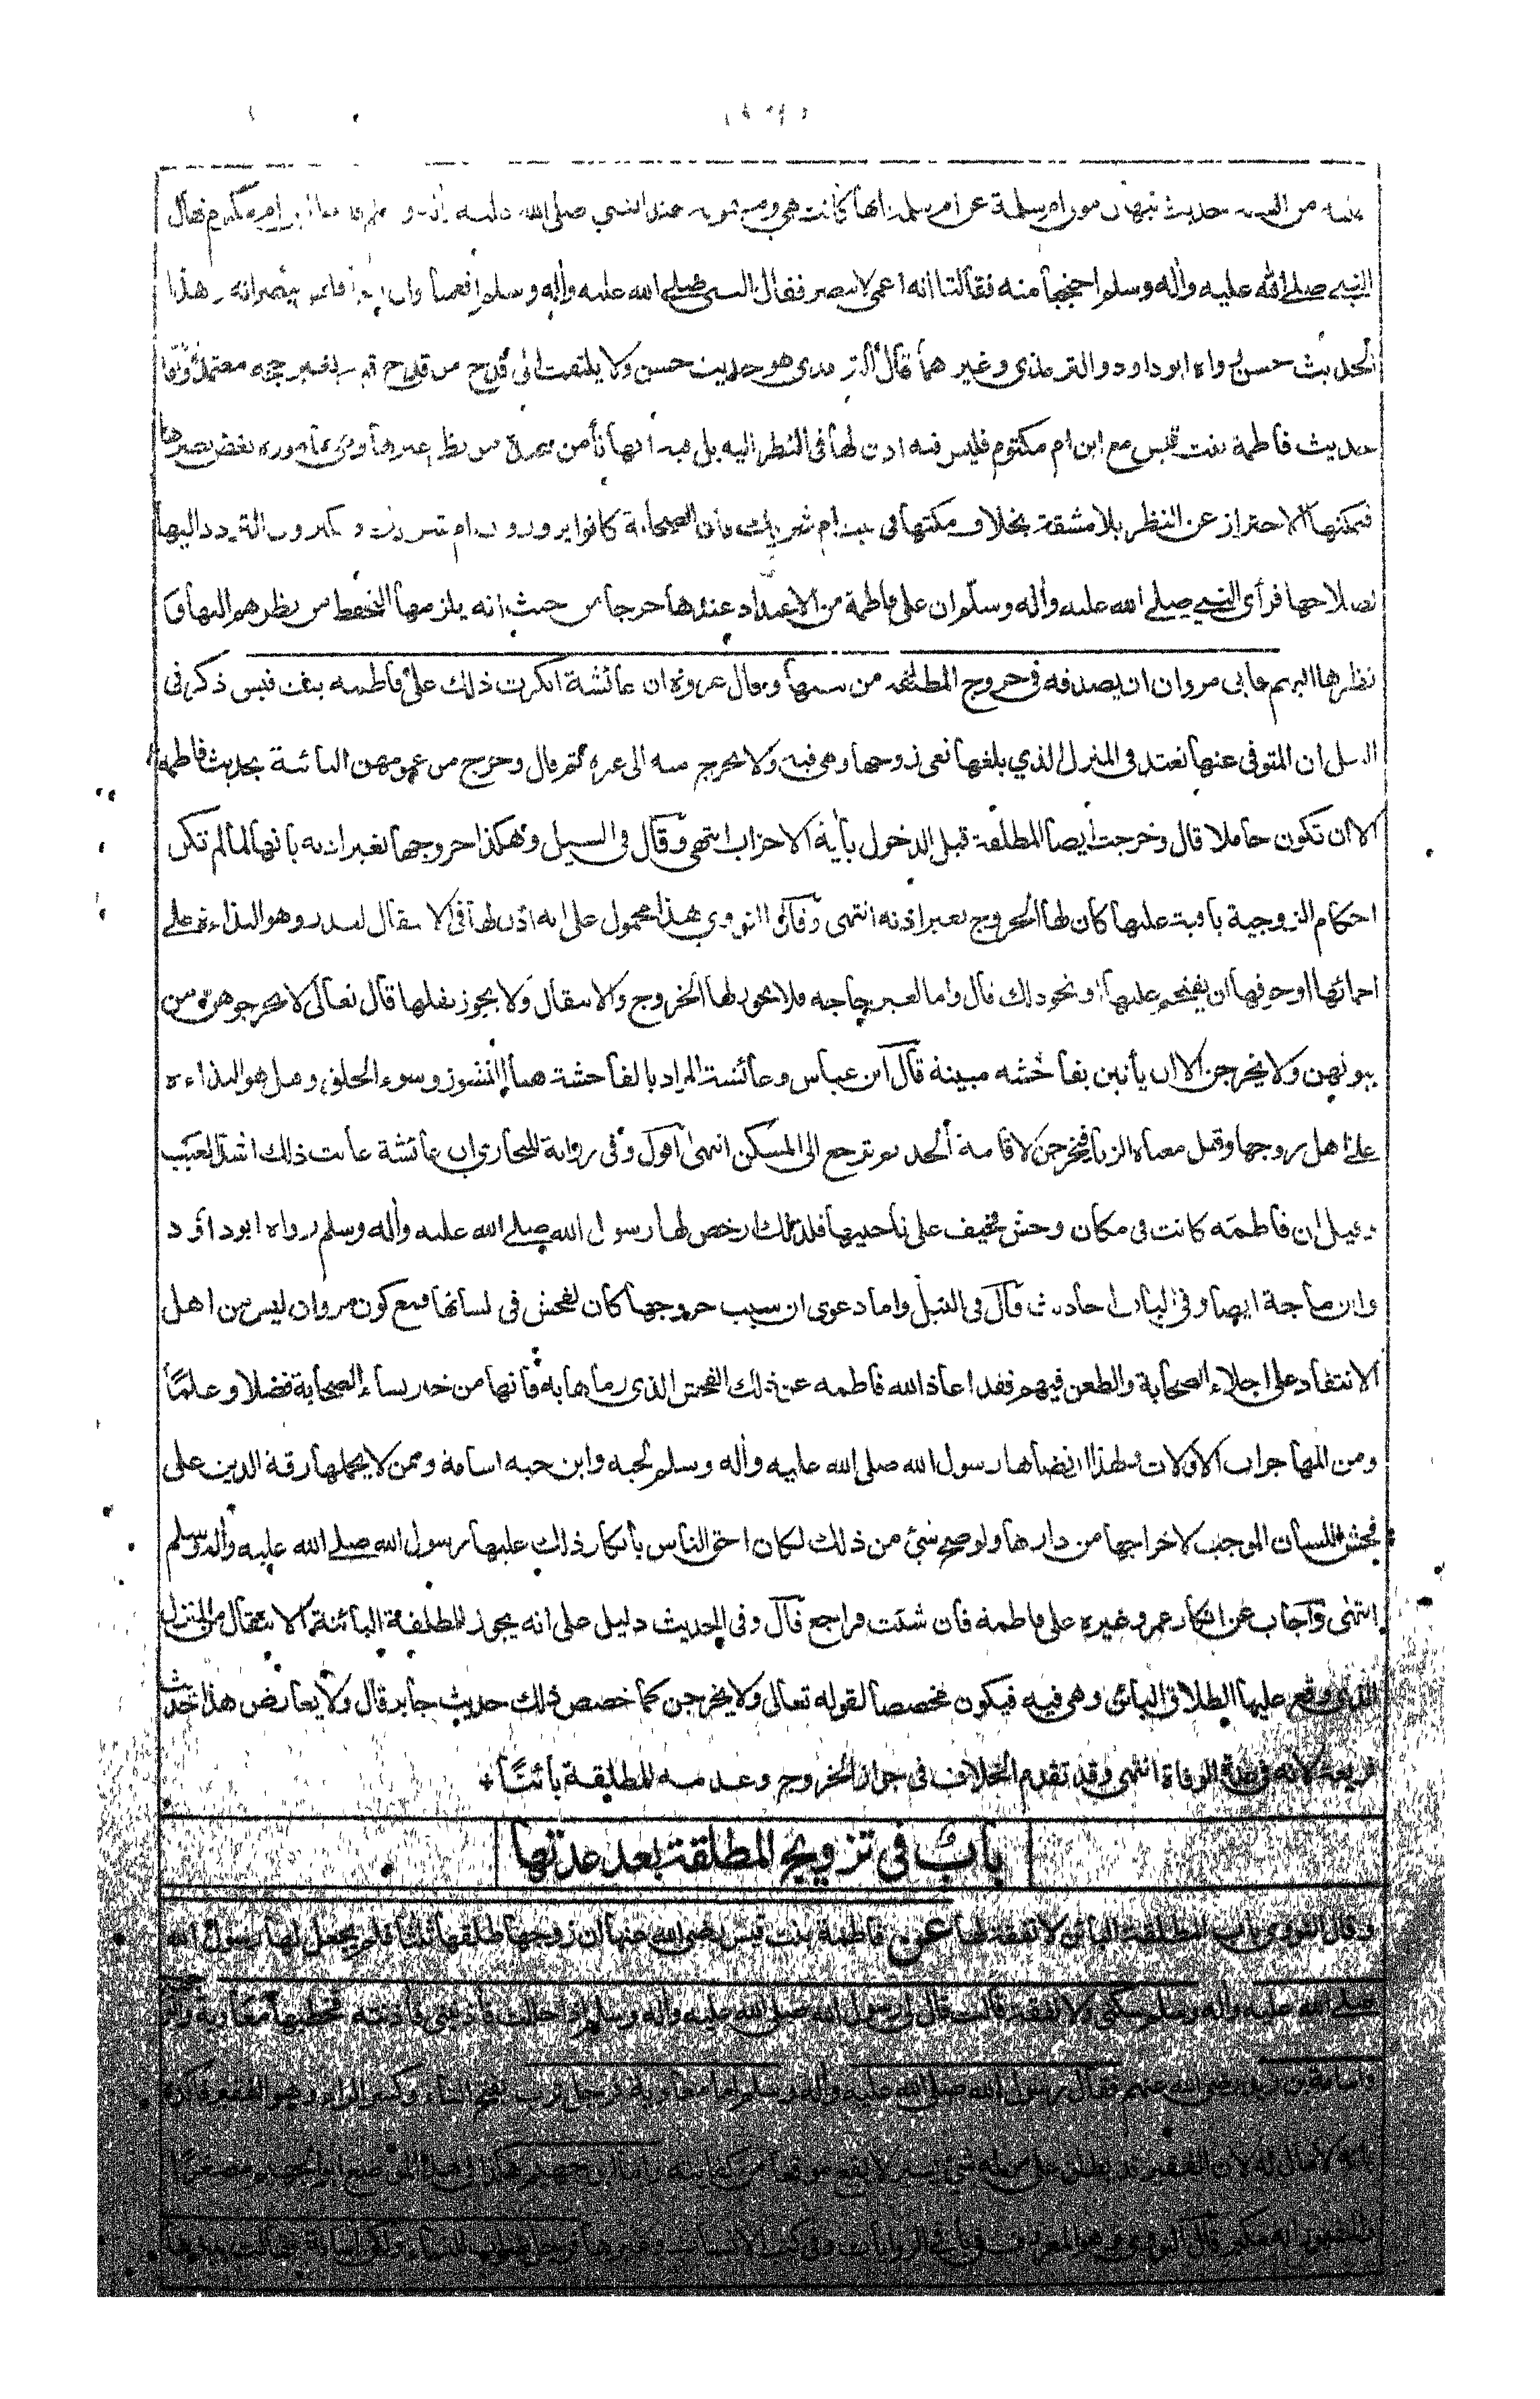 من الفتنة حديث نبهان مولى ام سلمة عن ام سلمة انها كانت هي وميمونة عند النبي صلى الله عليه وآله وسلم فدخل ابن ام مكتوم فقال
النبي صلى الله عليه وأله وسلم احتجبا منه فقالتا انه اعمى لا يبصر فقال النبي صلى الله عليه وأله وسلم افعميا وان انتما فليس تبصرانه وهذا
الحديث حسن رواه ابو داود والترمذي وغيرهما قال الترمذى هو حديث حسن ولا يلتفت الى قدح من قدح فيه بغير حجة معتمدة واما
حديث فاطمة بنت قيس مع ابن ام مكتوم فليس فيه اذن لها فى النظر اليه بل فيه انها تأمن عنده من نظر غيرها وهى مأمورة بغض بصرها
فيمكنها الاحتراز عن النظر بلا مشقة بخلاف مكثها فى بيت ام شريك لأن الصحابة كانوا يزورون ام شريك و يكثرون التردد اليها
لصلاحها فرأى النبى صلى الله عليه وأله وسلم ان على فاطمة من الاعتداد عندها حرجا من حيث انه يلزمها التحفظ من نظرهم اليها و
نظرها اليهم فابى مروان ان يصدقه فى خروج المطلقة من بيتها وقال عروة ان عائشة انكرت ذلك على فاطمة بنت قيس ذكر فى
السيل ان المتوفى عنها تعتد فى المنزل الذي بلغها نعى زوجها وهى فيه ولا تخرج منه الى غيره ثم قال وخرج من عمومهن البائنة بحديث فاطمة
الا ان تكون حاملا قال وخرجت ايضا المطلقة قبل الدخول بأية الاحزاب انتهى وقال فى السيل وهكذا خروجها بغير اذنه بانها لما لم تكن
احكام الزوجية باقية عليها كان لها الخروج بغير اذنه انتهى وقال النووي هذا محمول على انه اذن لها فى الانتقال لعذر وهو البذاءة على
احمائها او خوفها ان يقتحم عليها او نحو ذلك قال واما لغير حاجة فلا يجوز لها الخروج والانتقال ولا يجوز نقلها قال تعالى لا تخرجوهن من
بيوتهن ولا يخرجن الا ان يأتين بفاحشة مبينة قال ابن عباس وعائشة المراد بالفاحشة هنا النشوز وسوء الخلق وقيل هو البذاءة
على اهل زوجها وقيل معناه الزنا فيخرجن لاقامة الحد ثم ترجع الى المسكن انتهى اقول وفى رواية للبخارى ان عائشة عابت ذلك اشد العيب
وقيل ان فاطمة كانت فى مكان وحش فخيف على ناحيتها فلذلك رخص لها رسول الله صلى الله عليه وأله وسلم رواه ابو داؤد
وابن ماجة ايضا وفى الباب احاديث قال فى النيل واما دعوى ان سبب خروجها كان لفحش فى لسانها فمع كون مروان ليس من اهل
الانتقاد على اجلاء الصحابة والطعن فيهم فقد اعاذ الله فاطمة عن ذلك الفحش الذى رماها به فأنها من خيار نساء الصحابة فضلا وعلمًا
ومن المهاجرات الاولات ولهذا ارتضاها رسول الله صلى الله عليه وأله وسلم لحبه وابن حبه اسامة وممن لا يحملها رقة الدين على
فحش اللسان الموجب لاخراجها من دارها ولو صح شئ من ذلك لكان احق الناس بأنكار ذلك عليها رسول الله صلى الله عليه وأله وسلم
انتهى وأجاب عن انكار عمر وغيره على فاطمة فان شئت فراجع قال وفى الحديث دليل على انه يجوز للمطلقة البائنة الانتقال من المنزل
الذى وقع عليها الطلاق البائن وهى فيه فيكون مخصصا لقوله تعالى ولا يخرجن كما خصص ذلك حديث جابر قال ولا يعارض هذا حديث
فريعة لانه فى عدة الوفاة انتهى وقد تقدم الخلاف فى جواز الخروج وعدمه للمطلقة بائنًا
باب فى تزويج المطلقة بعد عدتها
وقال النووى باب المطلقة البائن لا نفقة لها عن فاطمة بنت قيس رضى الله عنها ان زوجها طلقها ثلثا فلم يجعل لها رسول الله
صلى الله عليه وأله وسلم سكنى ولا نفقة قالت قال لى رسول الله صلى الله عليه وأله وسلم اذا حللت فأذنينى فأذنته فخطبها معاوية وابو جهم
واسامة بن زيد رضى الله عنهم فقال رسول الله صلى الله عليه وأله وسلم اما معاوية فرجل ترب بفتح التاء وكسر الراء وهو الفقير فاكده
بانه لا مال له لان الفقير قد يطلق على من له شئ يسير لا يقع موقعا من كفايته واما ابو جهم